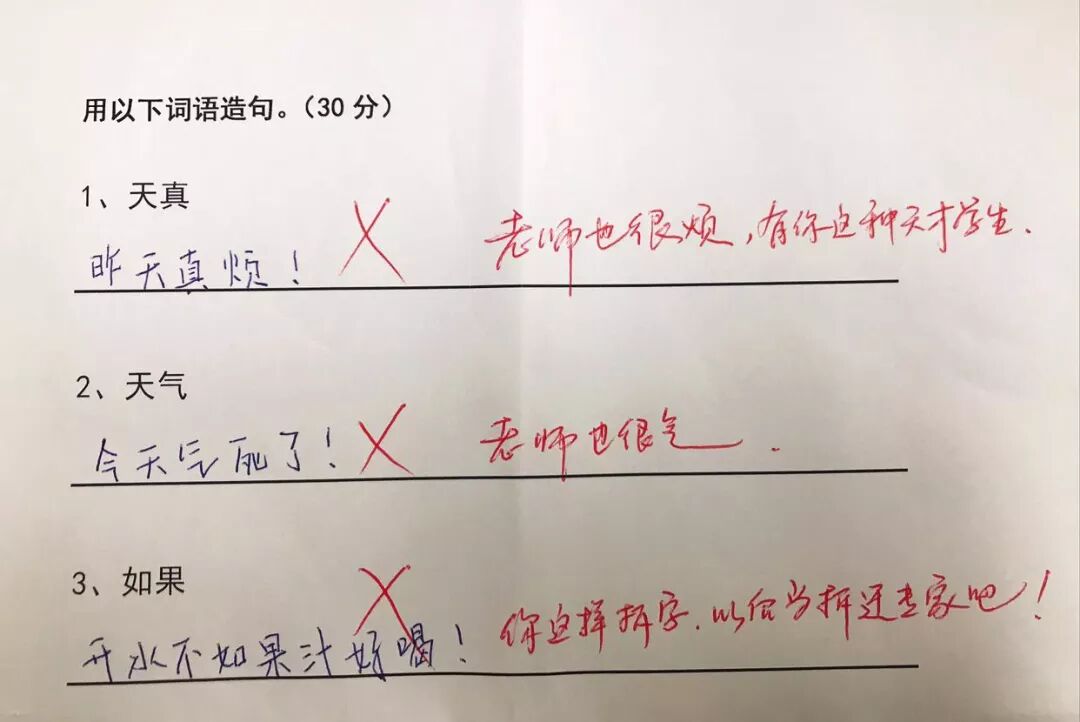 用以下词语造句。（30 分）
1、天真
昨天真烦！ 老师也很烦，有你这种天才学生.
2、天气
今天气死了！ 老师也很气.
3、如果
开水不如果汁好喝！ 你这样拆字.以后当拆迁专家吧！